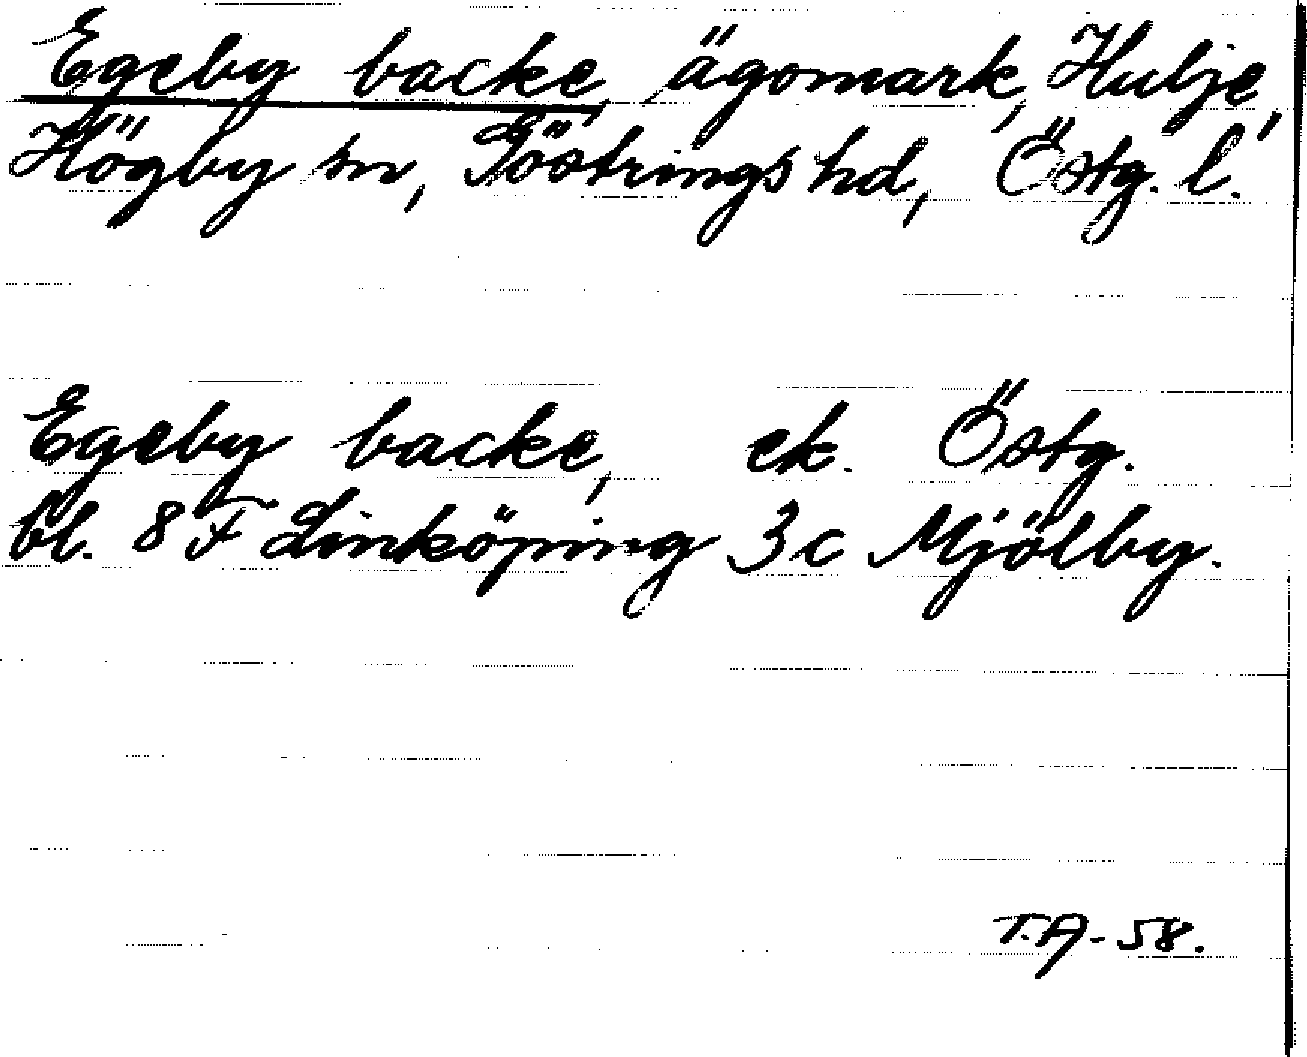 Egeby backe, ägomark, Hulje,
Högby sn, Göstrings hd, Östg. l.
Egeby backe, ek. Östg.
bl. 8 F Linköping 3c Mjölby.
T.A-58.